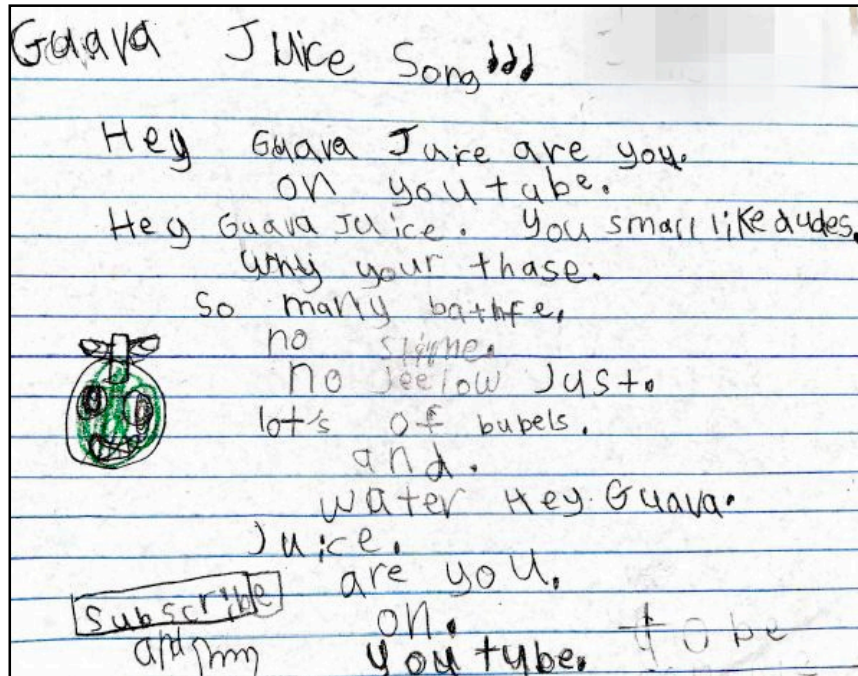 Guava Juice Song
Hey Guava Juice are you.
on youtube.
Hey Guava Juice. You small like dudes.
Why your thase.
So many bathfe.
no slime.
no Jeelow Just.
lot's of bubels.
and.
water Hey. Guava.
Juice.
are you.
on.
youtybe.
to be
Subscribe